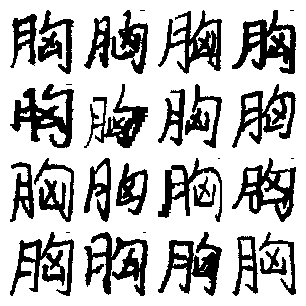 胸胸胸胸
胸胸胸胸
胸胸胸胸
胸胸胸胸